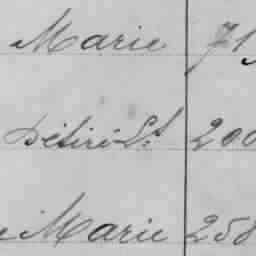 Marie 71
Désiré St. 200
Marie 258